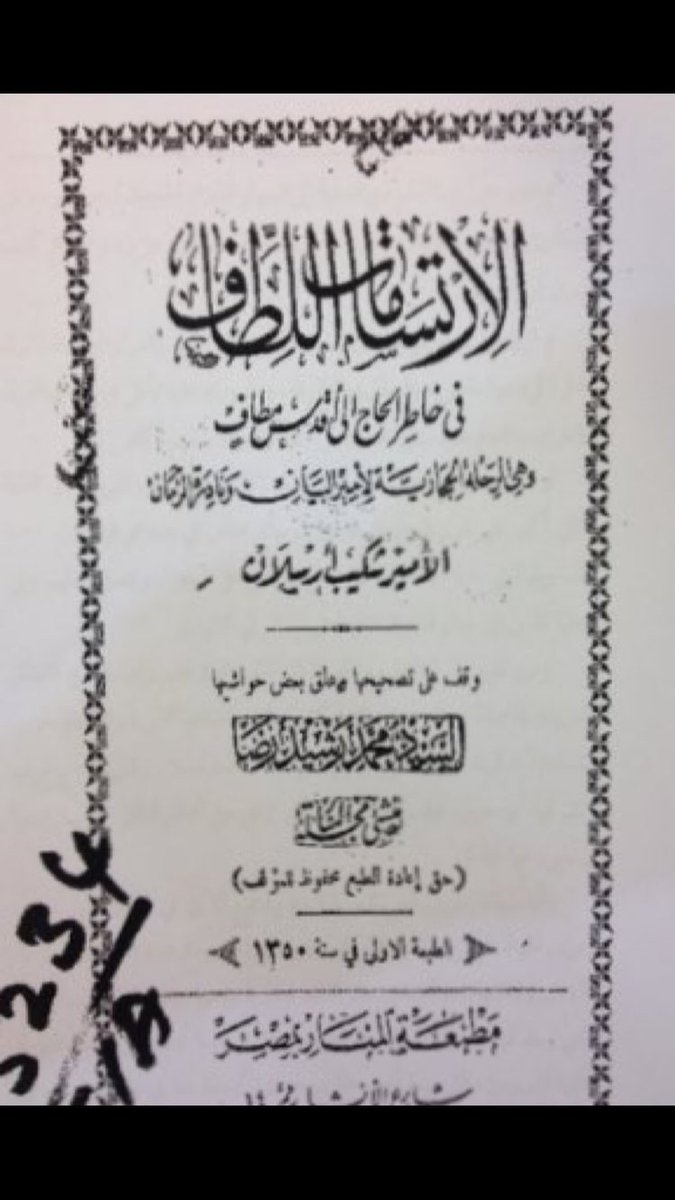 الارتسامات اللطاف
في خاطر الحاج إلى أقدس مطاف
وهي الرحلة الحجازية لأمير البيان ونادرة الزمان
الأمير شكيب أرسلان
وقف على تصحيحها وعلق بعض حواشيها
السيد محمد رشيد رضا
منشئ مجلة المنار
(حق إعادة الطبع محفوظ للمؤلف)
الطبعة الاولى في سنة ١٣٥٠
مطبعة المنار بمصر
شارع الإنشا نمرة ١٤